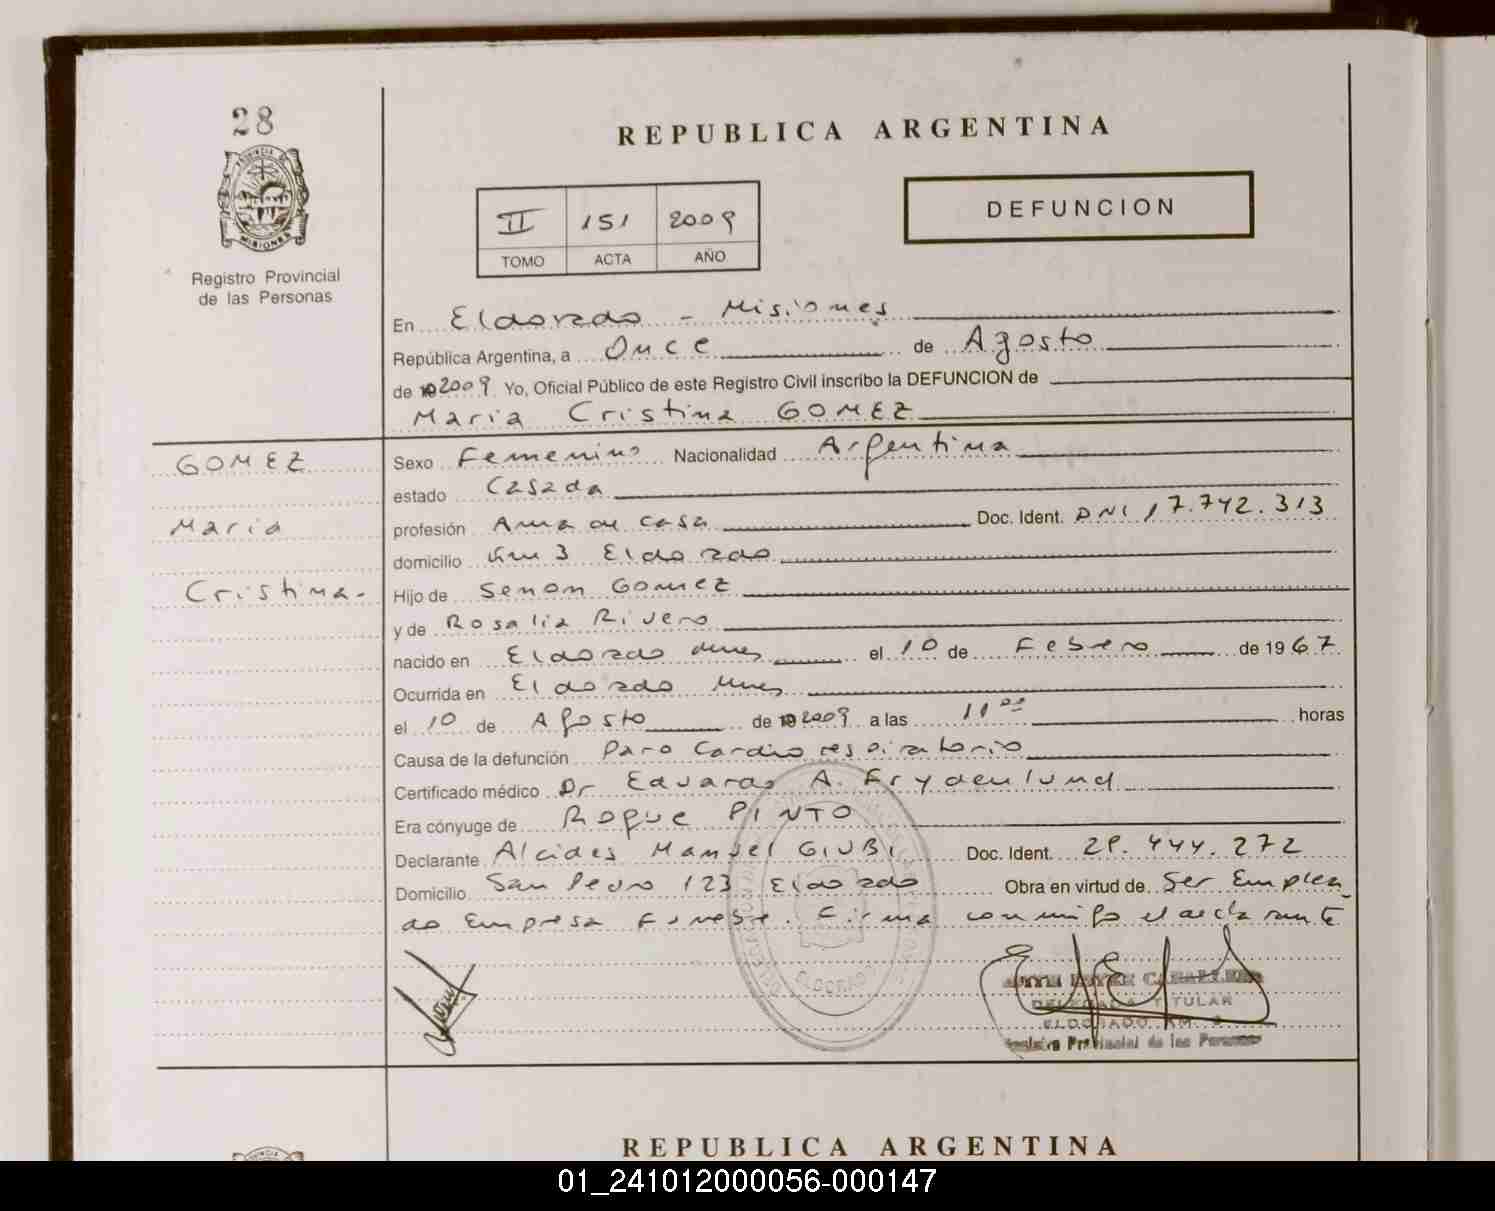 28
REPUBLICA ARGENTINA
PROVINCIA DE
MISIONES
Registro Provincial
de las Personas
II 151 2009
TOMO ACTA AÑO
DEFUNCION
En Eldorado - Misiones
República Argentina, a Once de Agosto
de 2009 Yo, Oficial Público de este Registro Civil inscribo la DEFUNCION de
Maria Cristina GOMEZ
GOMEZ
Maria
Cristina-
Sexo Femenino Nacionalidad Argentina
estado Casada
profesión Ama de casa Doc. Ident. DNI 17.742.313
domicilio Km 3 Eldorado
Hijo de Senon Gomez
y de Rosalia Rivero
nacido en Eldorado Mnes el 10 de Febrero de 1967
Ocurrida en Eldorado Mnes
el 10 de Agosto de 2009 a las 11 00 horas
Causa de la defunción Paro Cardio respiratorio
Certificado médico Dr Eduardo A. Frydenlund
Era cónyuge de Roque PINTO
Declarante Alcides Manuel GIUBI Doc. Ident. 28.444.272
Domicilio San Pedro 123 Eldorado Obra en virtud de Ser Emplea
do Empresa Funebre. Firma conmigo el declarante
ELDORADO
CABALLERO
DELEGADA TITULAR
ELDORADO KM.
Registro Provincial de las Personas
REPUBLICA ARGENTINA
01_241012000056-000147